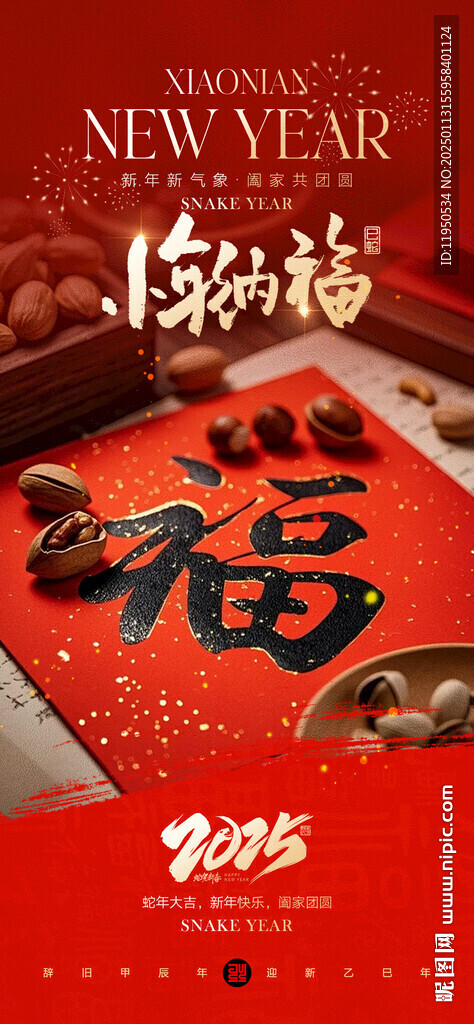 XIAONIAN
NEW YEAR
新年新气象·阖家共团圆
SNAKE YEAR
纳福
巳蛇
福
2025
蛇年大吉，新年快乐，阖家团圆
HAPPY
NEW YEAR
SNAKE YEAR
辞旧甲辰年 迎新乙巳年
ID:11950534 NO:20250113155958401124
昵图网 www.nipic.com